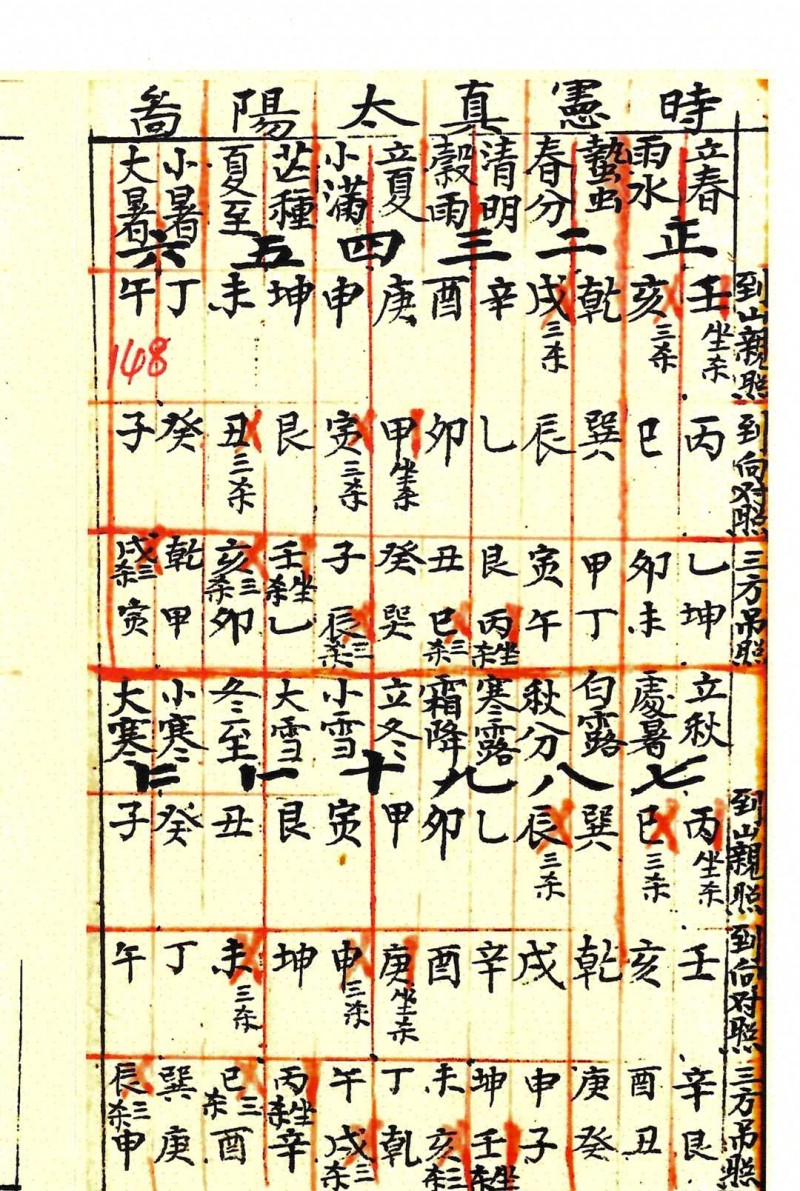 時憲真太陽啚
立春 雨水 蟄虫 春分 清明 穀雨 立夏 小滿 芒種 夏至 小暑 大暑
正 二 三 四 五 六
到山親照
壬坐杀 亥三杀 乾 戌三杀 辛 酉 庚 申 坤 未 丁 午
148
到向对照
丙 巳 巽 辰 乙 卯 甲坐杀 寅三杀 艮 丑三杀 癸 子
三方吊照
乙 卯 甲 寅 艮 丑 癸 子 壬坐杀 亥三杀 乾 戌三杀
坤 未 丁 午 丙坐杀 巳三杀 巽 辰三杀 乙 卯 甲 寅
立秋 處暑 白露 秋分 寒露 霜降 立冬 小雪 大雪 冬至 小寒 大寒
七 八 九 十 十一 十二
到山親照
丙坐杀 巳三杀 巽 辰三杀 乙 卯 甲 寅 艮 丑 癸 子
到向对照
壬 亥 乾 戌 辛 酉 庚坐杀 申三杀 坤 未三杀 丁 午
三方吊照
辛 酉 庚 申 坤 未 丁 午 丙坐杀 巳三杀 巽 辰三杀
艮 丑 癸 子 壬坐杀 亥三杀 乾 戌三杀 辛 酉 庚 申